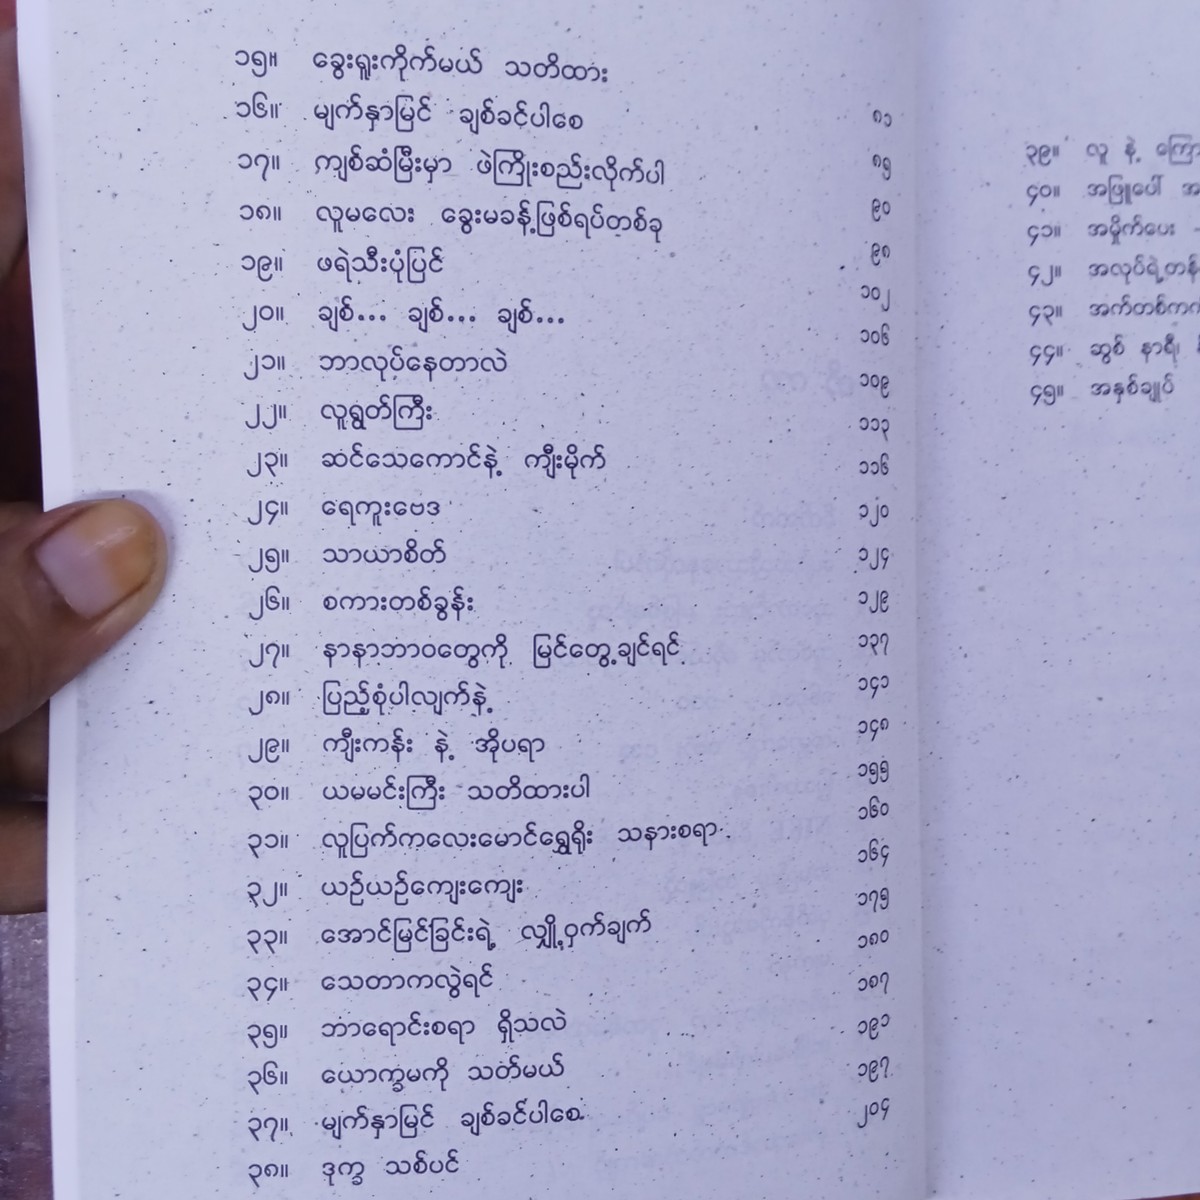 ၁၅။ ခွေးရူးကိုက်မယ် သတိထား
၁၆။ မျက်နှာမြင် ချစ်ခင်ပါစေ ၈၁
၁၇။ ကျစ်ဆံမြီးမှာ ဖဲကြိုးစည်းလိုက်ပါ ၈၅
၁၈။ လူမလေး ခွေးမခန့်ဖြစ်ရပ်တစ်ခု ၉၀
၁၉။ ဖရဲသီးပုံပြင် ၉၈
၂၀။ ချစ်... ချစ်... ချစ်... ၁၀၂
၂၁။ ဘာလုပ်နေတာလဲ ၁၀၆
၂၂။ လူရွှတ်ကြီး ၁၀၉
၂၃။ ဆင်သေကောင်နဲ့ ကျီးမိုက် ၁၁၃
၂၄။ ရေကူးဗေဒ ၁၁၆
၂၅။ သာယာစိတ် ၁၂၀
၂၆။ စကားတစ်ခွန်း ၁၂၄
၂၇။ နာနာဘာဝတွေကို မြင်တွေ့ချင်ရင် ၁၂၉
၂၈။ ပြည့်စုံပါလျက်နဲ့ ၁၃၇
၂၉။ ကျီးကန်း နဲ့ အိုပရာ ၁၄၁
၃၀။ ယမမင်းကြီး သတိထားပါ ၁၄၈
၃၁။ လူပြက်ကလေးမောင်ရွှေရိုး သနားစရာ ၁၅၅
၃၂။ ယဉ်ယဉ်ကျေးကျေး ၁၆၀
၃၃။ အောင်မြင်ခြင်းရဲ့ လျှို့ဝှက်ချက် ၁၆၄
၃၄။ သေတာကလွဲရင် ၁၇၅
၃၅။ ဘာရောင်းစရာ ရှိသလဲ ၁၈၀
၃၆။ ယောက္ခမကို သတ်မယ် ၁၈၇
၃၇။ မျက်နှာမြင် ချစ်ခင်ပါစေ ၁၉၁
၃၈။ ဒုက္ခ သစ်ပင် ၁၉၇
၂၀၄
၃၉။ လူ နဲ့
၄၀။ အဖြူပေါ်
၄၁။ အမှိုက်ပေး -
၄၂။
၄၃။
၄၄။ ဆွစ် နာရီ၊
၄၅။ အနှစ်ချုပ်